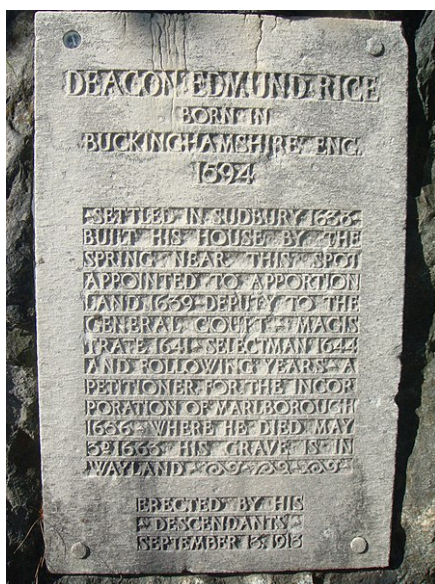 DEACON EDMUND RICE
BORN IN
BUCKINGHAMSHIRE ENG.
1594
-SETTLED IN SUDBURY 1638-
BUILT HIS HOUSE BY THE
SPRING NEAR THIS SPOT
APPOINTED TO APPORTION
LAND 1639-DEPUTY TO THE
GENERAL COURT - MAGIS
TRATE 1641-SELECTMAN 1644
AND FOLLOWING YEARS - A
PETITIONER FOR THE INCOR
PORATION OF MARLBOROUGH
1656 - WHERE HE DIED MAY
3D 1663 HIS GRAVE IS IN
WAYLAND -
ERECTED BY HIS
- DESCENDANTS -
SEPTEMBER 13, 1913